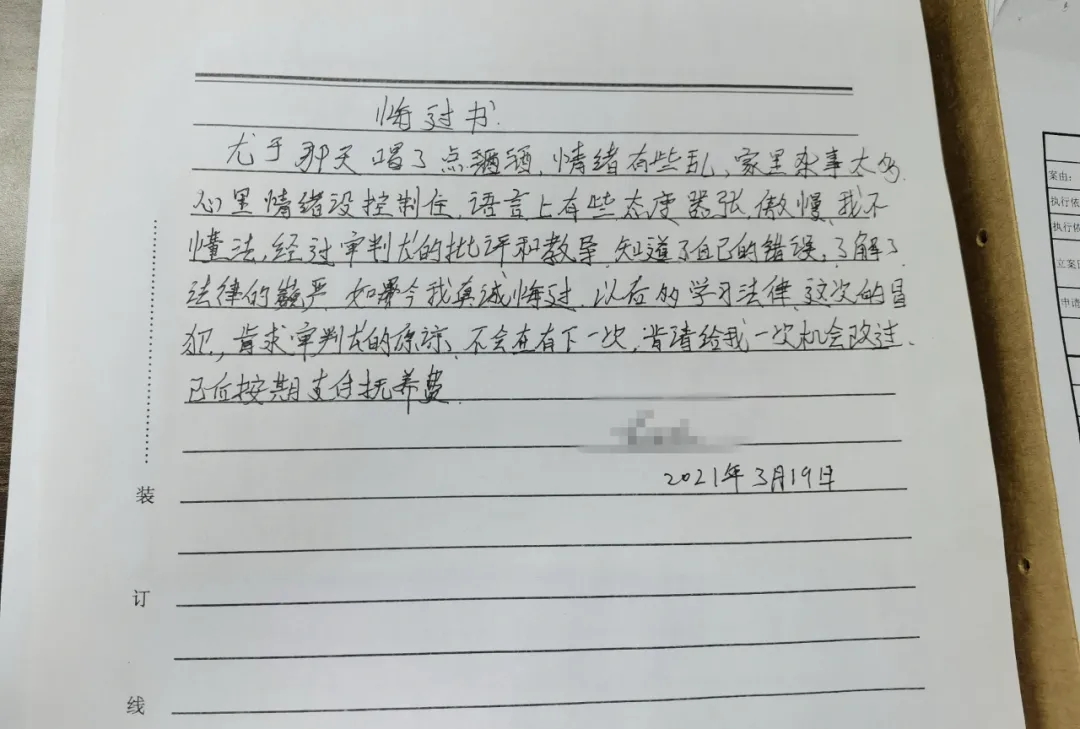 悔过书.
尤于那天喝了点酒酒,情绪有些乱,家里杂事太多,
心里情绪没控制住,语言上有些太度嚣张,傲慢,我不
懂法,经过审判长的批评和教导,知道了自已的错误,了解了
法律的严,如果今我真诚悔过,以后多学习法律,这次的冒
犯,肯求审判长的原谅,不会在有下一次,肯请给我一次机会改过、
已后按期支付抚养费.
2021年3月19日
装
订
线
案由:
执行依
执行依
立案日
申请